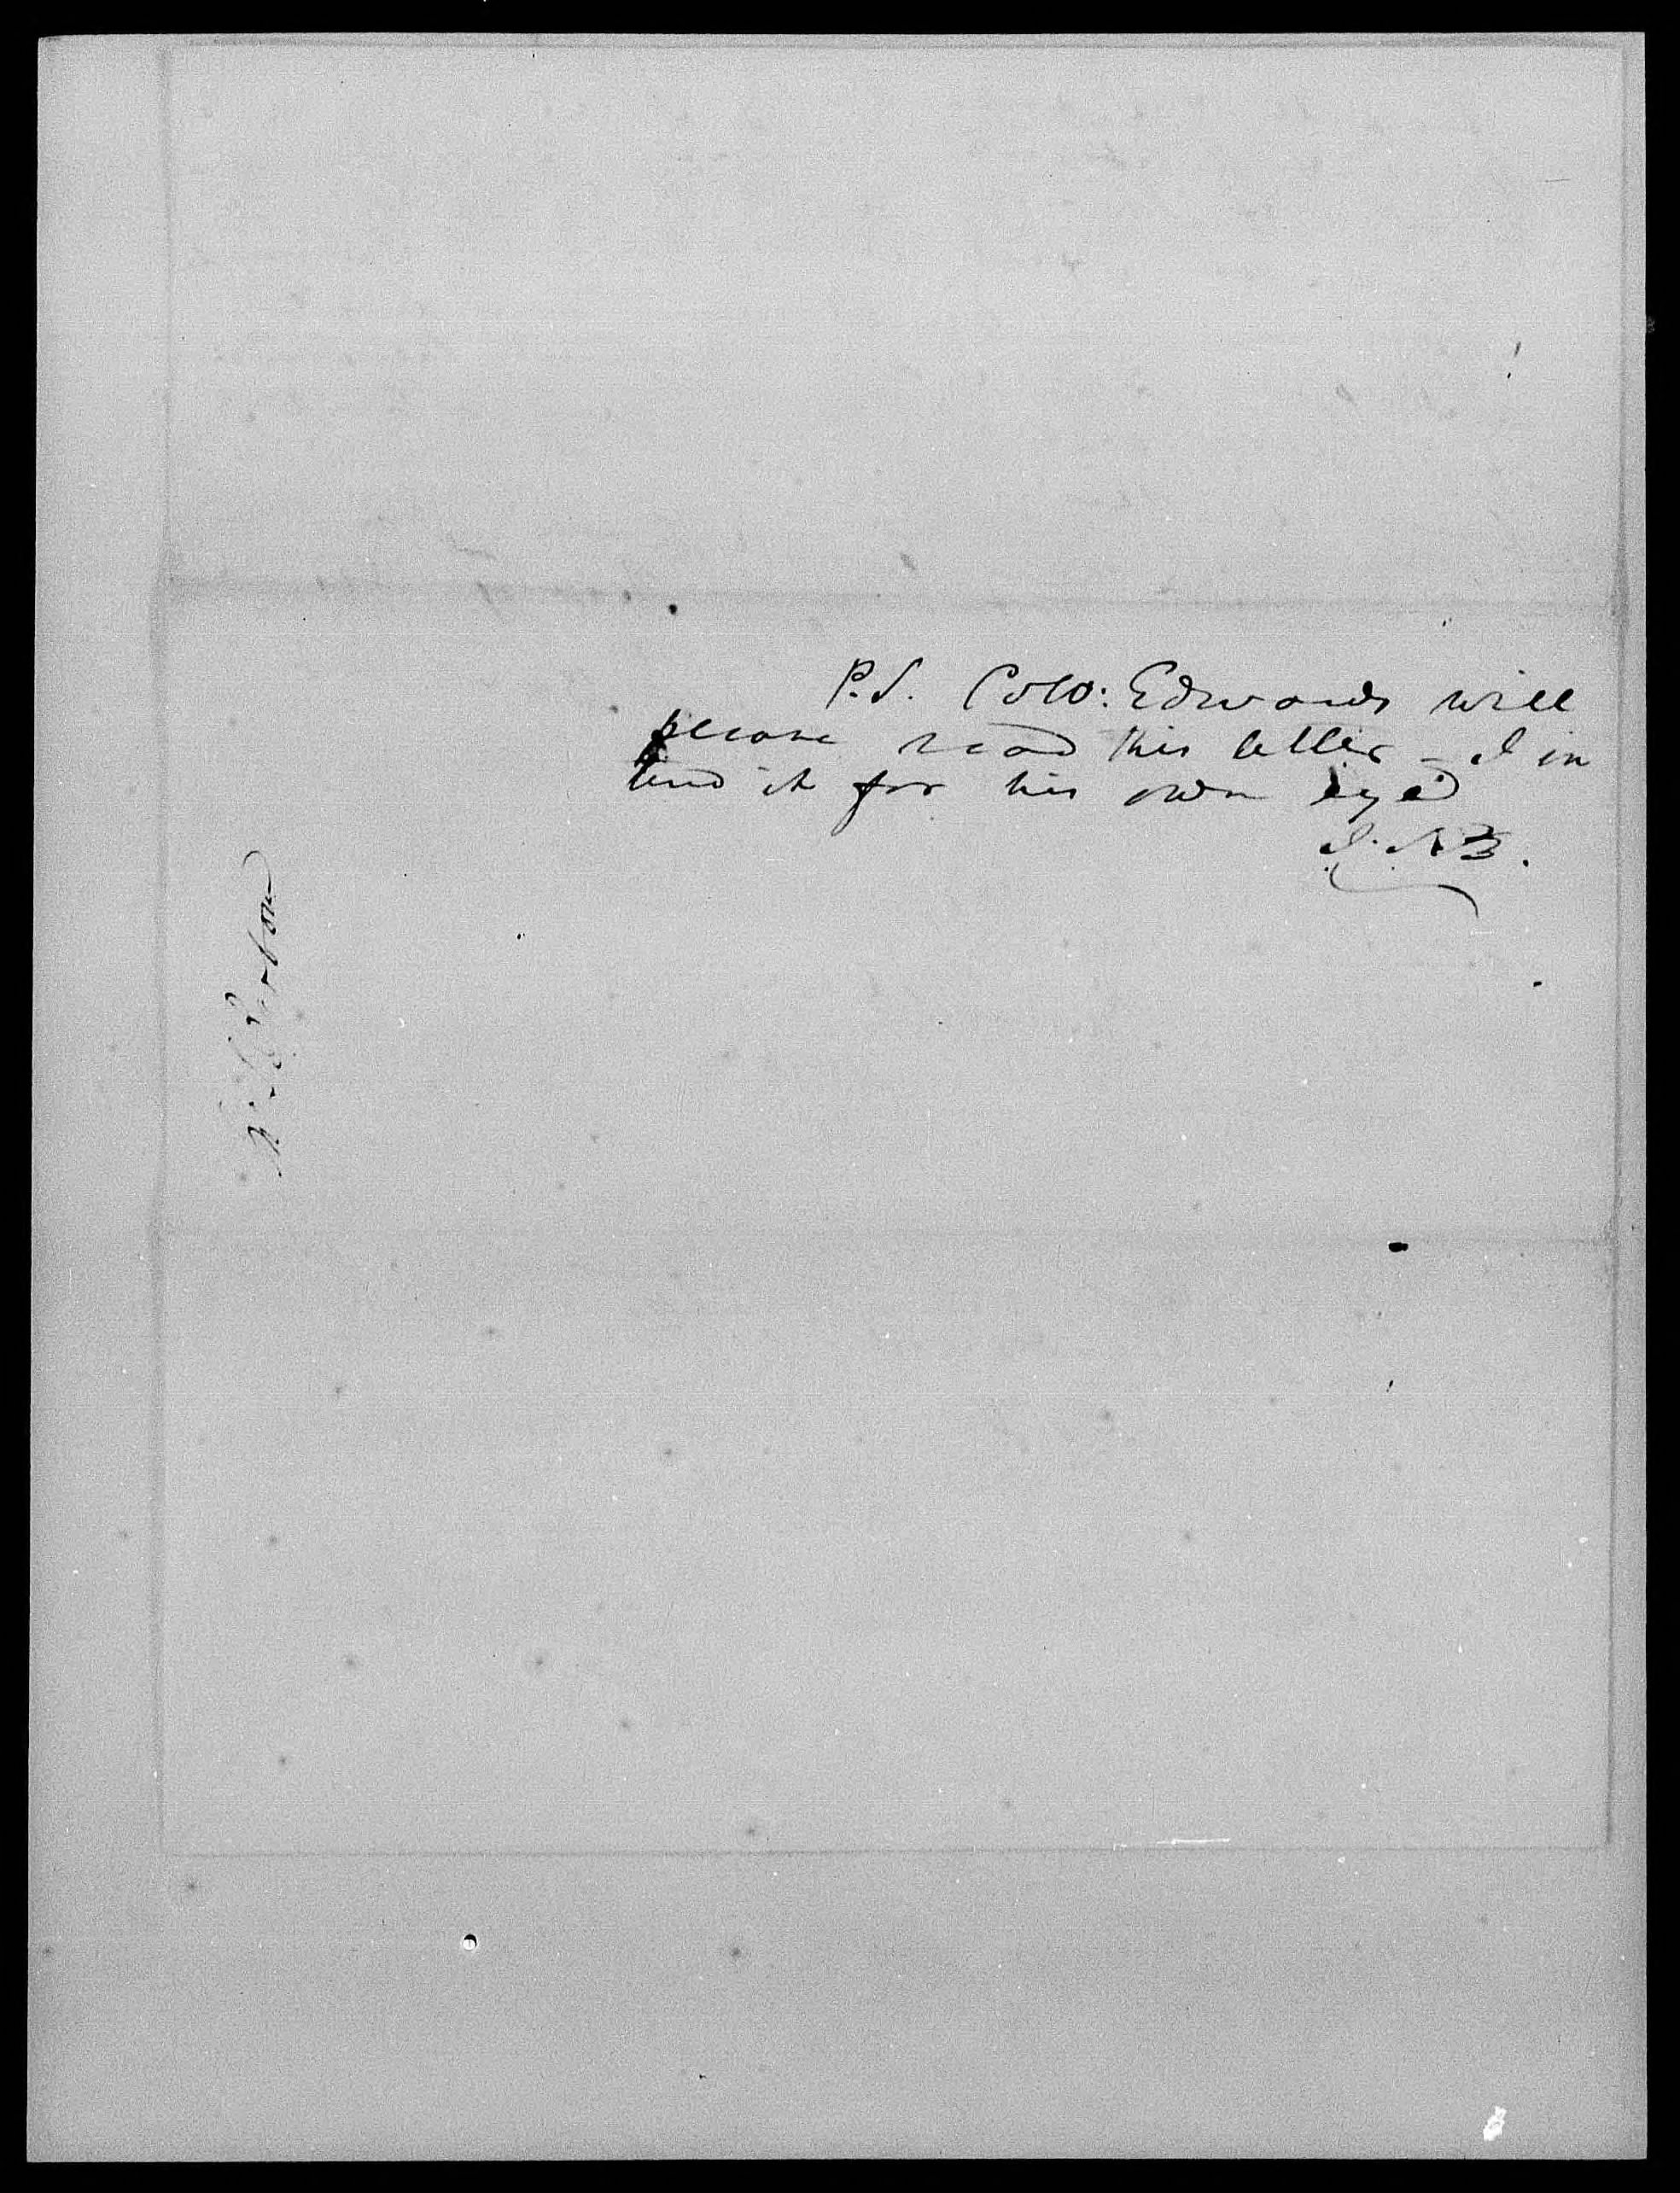 P.S. Colo: Edwards will
please read this letter - I in
tend it for his own eye